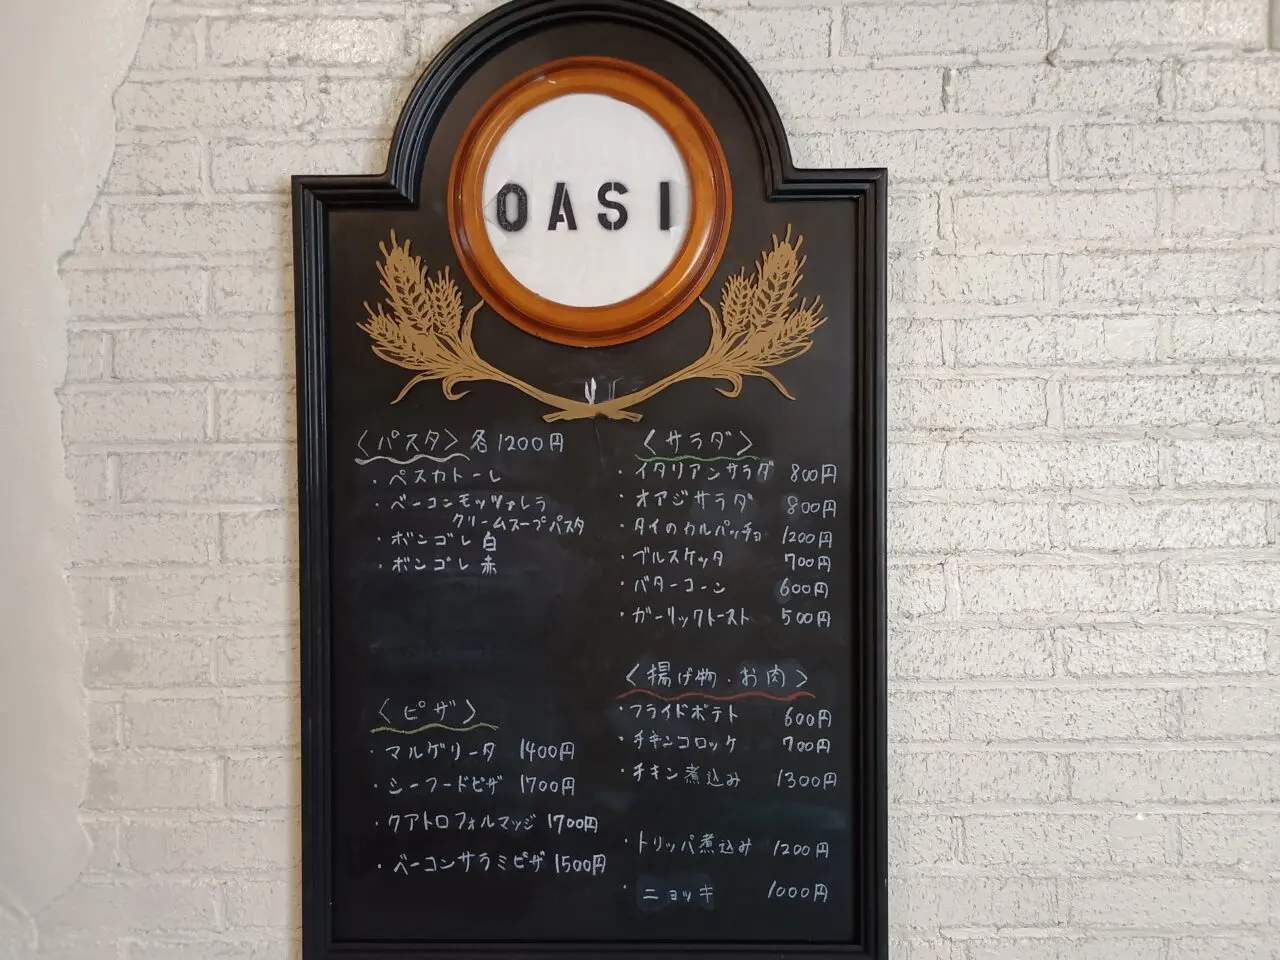 OASI
〈パスタ〉各1200円
・ペスカトーレ
・ベーコンモッツァレラ
クリームスープパスタ
・ボンゴレ 白
・ボンゴレ 赤
〈ピザ〉
・マルゲリータ 1400円
・シーフードピザ 1700円
・クアトロフォルマッジ 1700円
・ベーコンサラミピザ 1500円
〈サラダ〉
・イタリアンサラダ 800円
・オアジサラダ 800円
・タイのカルパッチョ 1200円
・ブルスケッタ 700円
・バターコーン 600円
・ガーリックトースト 500円
〈揚げ物・お肉〉
・フライドポテト 600円
・チキンコロッケ 700円
・チキン煮込み 1300円
・トリッパ煮込み 1200円
・ニョッキ 1000円